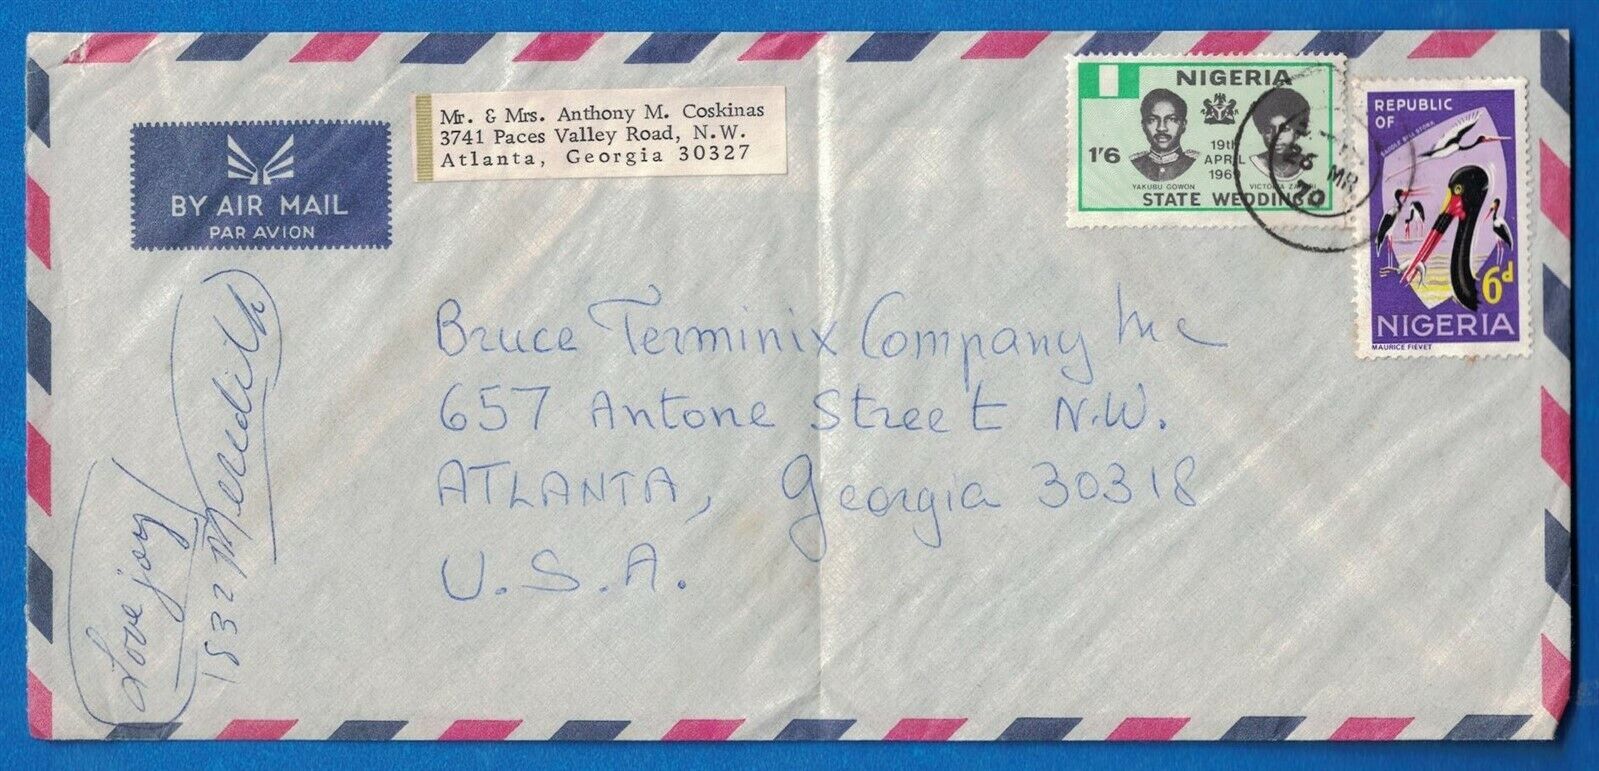 BY AIR MAIL
PAR AVION
Mr. & Mrs. Anthony M. Coskinas
3741 Paces Valley Road, N.W.
Atlanta, Georgia 30327
NIGERIA
1'6
19th
APRIL
1969
YAKUBU GOWON
VICTORIA
STATE WEDDING
26 MR
70
REPUBLIC
OF
SADDLE BILL STORK
6d
NIGERIA
MAURICE FIEVET
Bruce Terminix Company Inc
657 Antone Street N.W.
ATLANTA, Georgia 30318
U.S.A.
Lovejoy
1832 Meredith